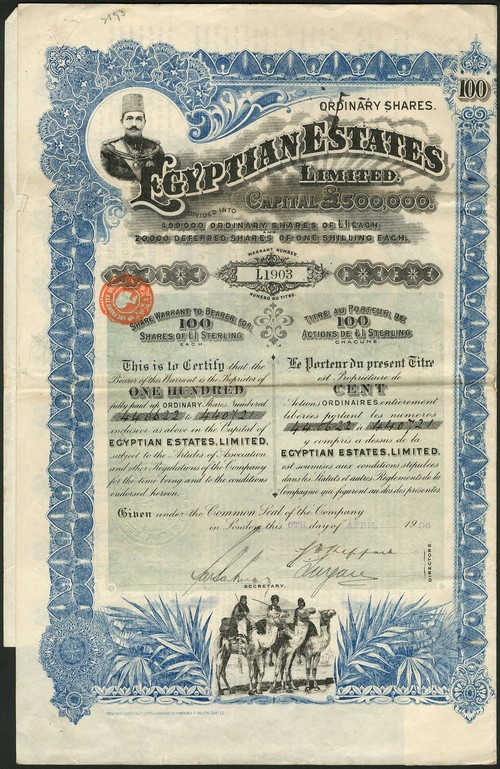 100
ORDINARY SHARES.
EGYPTIAN ESTATES
LIMITED.
CAPITAL £500,000.
DIVIDED INTO
499,000 ORDINARY SHARES OF £1 EACH.
20,000 DEFERRED SHARES OF ONE SHILLING EACH.
WARRANT NUMBER
L1903
NUMÉRO DU TITRE
SHARE WARRANT TO BEARER FOR
100
SHARES OF £1 STERLING
EACH.
This is to Certify that the
Bearer of this Warrant is the Proprietor of
ONE HUNDRED
fully paid up ORDINARY Shares Numbered
440622 to 440721
inclusive as above in the Capital of
EGYPTIAN ESTATES, LIMITED,
subject to the Articles of Association
and other Regulations of the Company
for the time being and to the conditions
endorsed hereon.
TITRE AU PORTEUR DE
100
ACTIONS DE £1 STERLING
CHACUNE.
Le Porteur du présent Titre
est Propriétaire de
CENT
Actions ORDINAIRES entièrement
libérées portant les numéros
440622 à 440721
y compris a dessus de la
EGYPTIAN ESTATES, LIMITED.
et soumises aux conditions stipulées
dans les Statuts et autres Règlements de la
Compagnie qui figurent au dos des présentes.
Given under the Common Seal of the Company
in London this 6TH day of APRIL 1906
SECRETARY.
DIRECTORS.